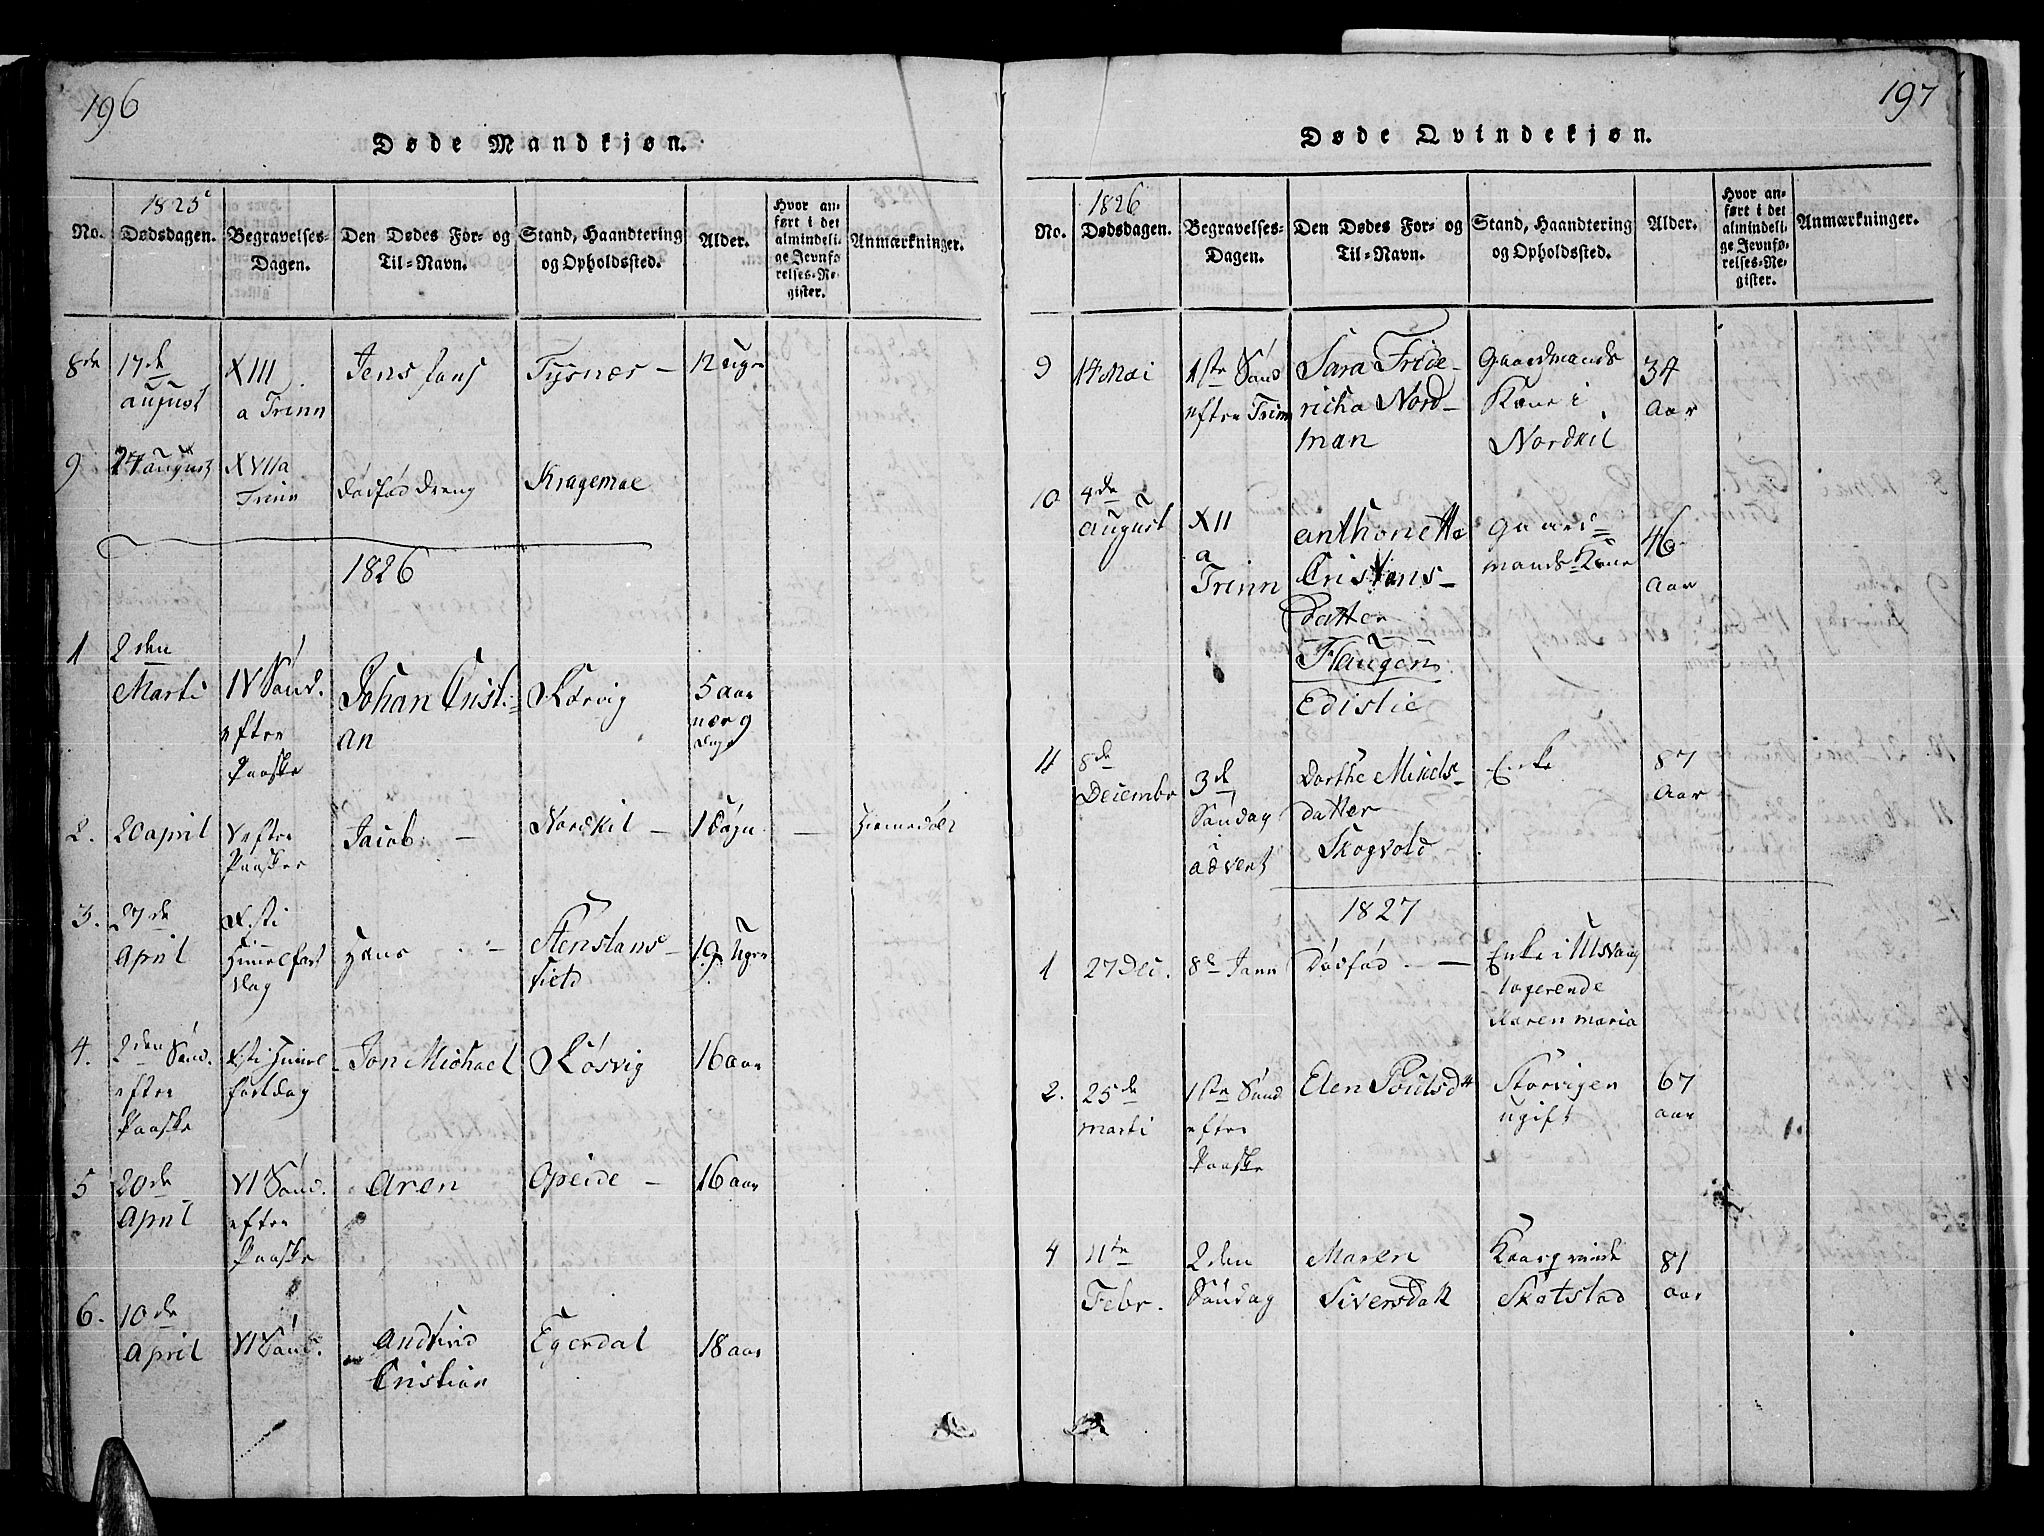 196
Døde Mandkjøn.
No.
1825
Dødsdagen.
Begravelses-
Dagen.
Den Dødes For- og
Til-Navn.
Stand, Haandtering
og Opholdssted.
Alder.
Hvor an-
ført i det
almindeli-
ge Jevnfø-
relses-Re-
gister.
Anmærkninger.
8de
17de
august
XIII
a Trinn
Jens
Tysnes –
12 uger
9
24 august
XVIIa
Trinn
dødfød dreng
Kragemoe
1826
1
2den
Marti
IV Sønd.
efter
Paaske
Johan Crist-
an
Korvig
5 aar
2.
20 april
V efter
Paaske
Jacob –
Nordkil –
1 Døgn –
Hiemedøbt
3.
27de
April
Xsti
Himmelfart
dag
Hans –
Stenslans-
field
19 Uger
4.
2den Sønd.
efter
Paaske
Xsti Himel
fartdag
Jon Michael
Kosvig
16 aar
5
20de
April
VI Sønd.
efter
Paaske
Aren
Opeide –
16 aar
6.
10de
April
VI Sønd.
Andfind
Cristian
Egerdal
18 aar
197
Døde Qvindekjøn.
No.
1826
Dødsdagen.
Begravelses-
Dagen.
Den Dødes For- og
Til-Navn.
Stand, Haandtering
og Opholdssted.
Alder.
Hvor an-
ført i det
almindeli-
ge Jevnfø-
relses-Re-
gister.
Anmærkninger.
9
14 Mai
1ste Sønd
efter Trinn
Sara Fride-
richa Nord-
man
Gaardmands
Kone i
Nordkil
34
Aar
10
4de
august
XII
a
Trinn
anthonette
Cristans-
datter
Haugen
Edislie
Gaard-
mands Kone
46
Aar
11
8de
Decembr
3de
Søndag
i
advent
Dorthe Mikels-
datter
Skogvold
Enke
87
Aar
1827
1
27 Dec.
8de Jann
Dødfød. –
Enke i Ulsvaag
logerende
Karen maria
2.
25de
marti
1ste Sønd
efter
Paaske
Elen Poulsdt
Storvigen
ugift
67
aar
4
11te
Febr.
2den
Søndag
Maren
Siversdatt
Kaarqvinde
Skotstad
81
aar